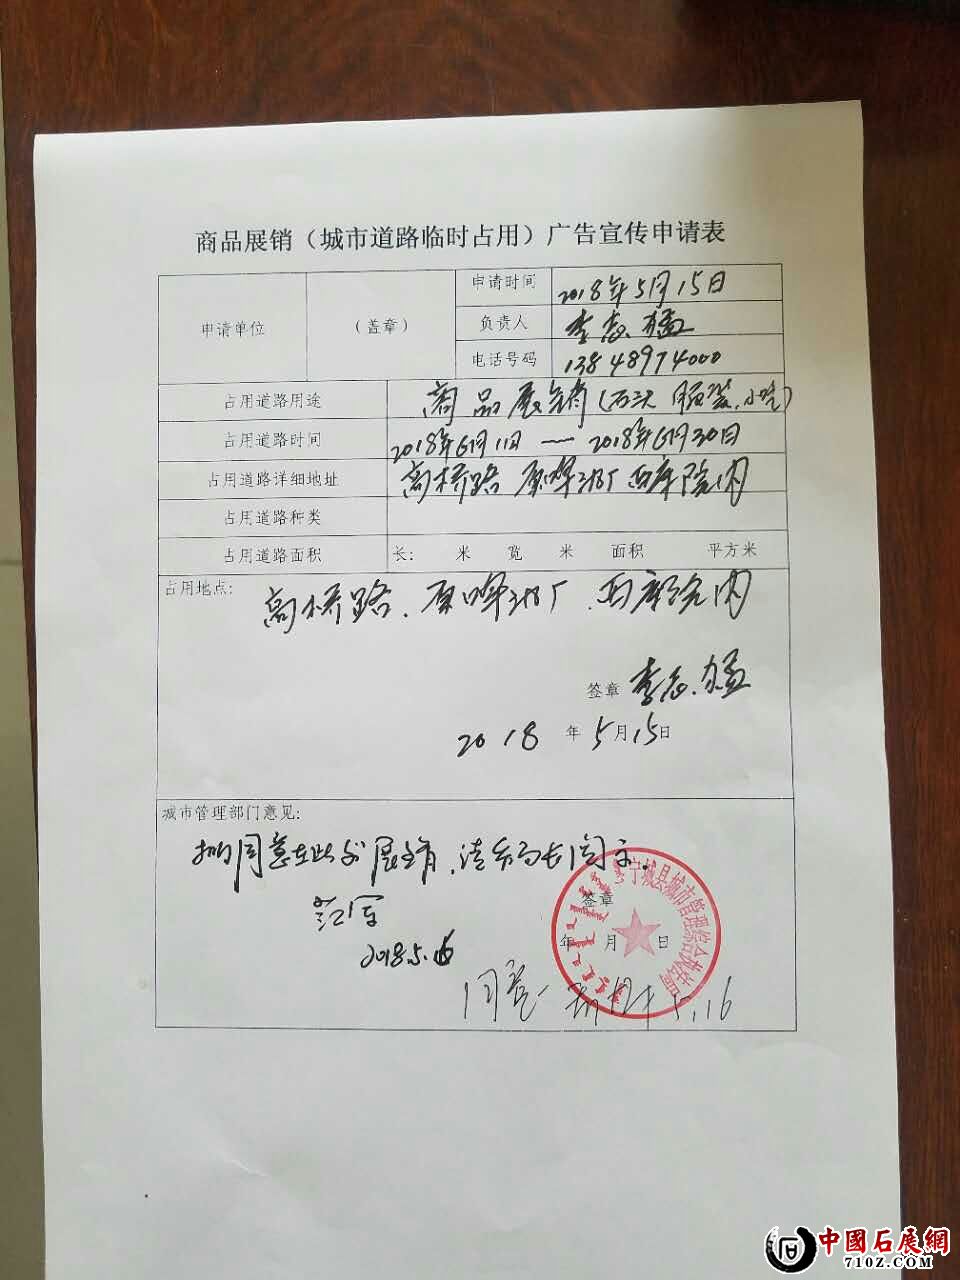 商品展销（城市道路临时占用）广告宣传申请表
申请单位
（盖章）
申请时间 2018年5月15日
负责人 李志猛
电话号码 13848974000
占用道路用途 商品展销(石头 服装、小吃)
占用道路时间 2018年6月1日 — 2018年6月30日
占用道路详细地址 高桥路 原啤酒厂西库院内
占用道路种类
占用道路面积 长： 米 宽 米 面积 平方米
占用地点：
高桥路、原啤酒厂、西库院内
签章 李志猛
2018 年 5 月 15 日
城市管理部门意见：
拟同意在此处展销，请局长阅示。
签章
2018.5.16
年 月 日
宁城县城市管理综合执法局
同意 5.16
中國石展網
710Z.COM